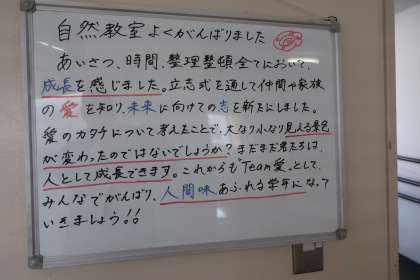 自然教室よくがんばりました
あいさつ、時間、整理整頓全てにおいて、
成長を感じました。立志式を通して仲間や家族
の愛を知り、未来に向けての志を新たにしました。
愛のカタチについて考えたことで、大なり小なり見える景色
が変わったのではないでしょうか？まだまだ君たちは、
人として成長できます。これからも"Team愛"として、
みんなでがんばり、人間味あふれる学年になって
いきましょう!!